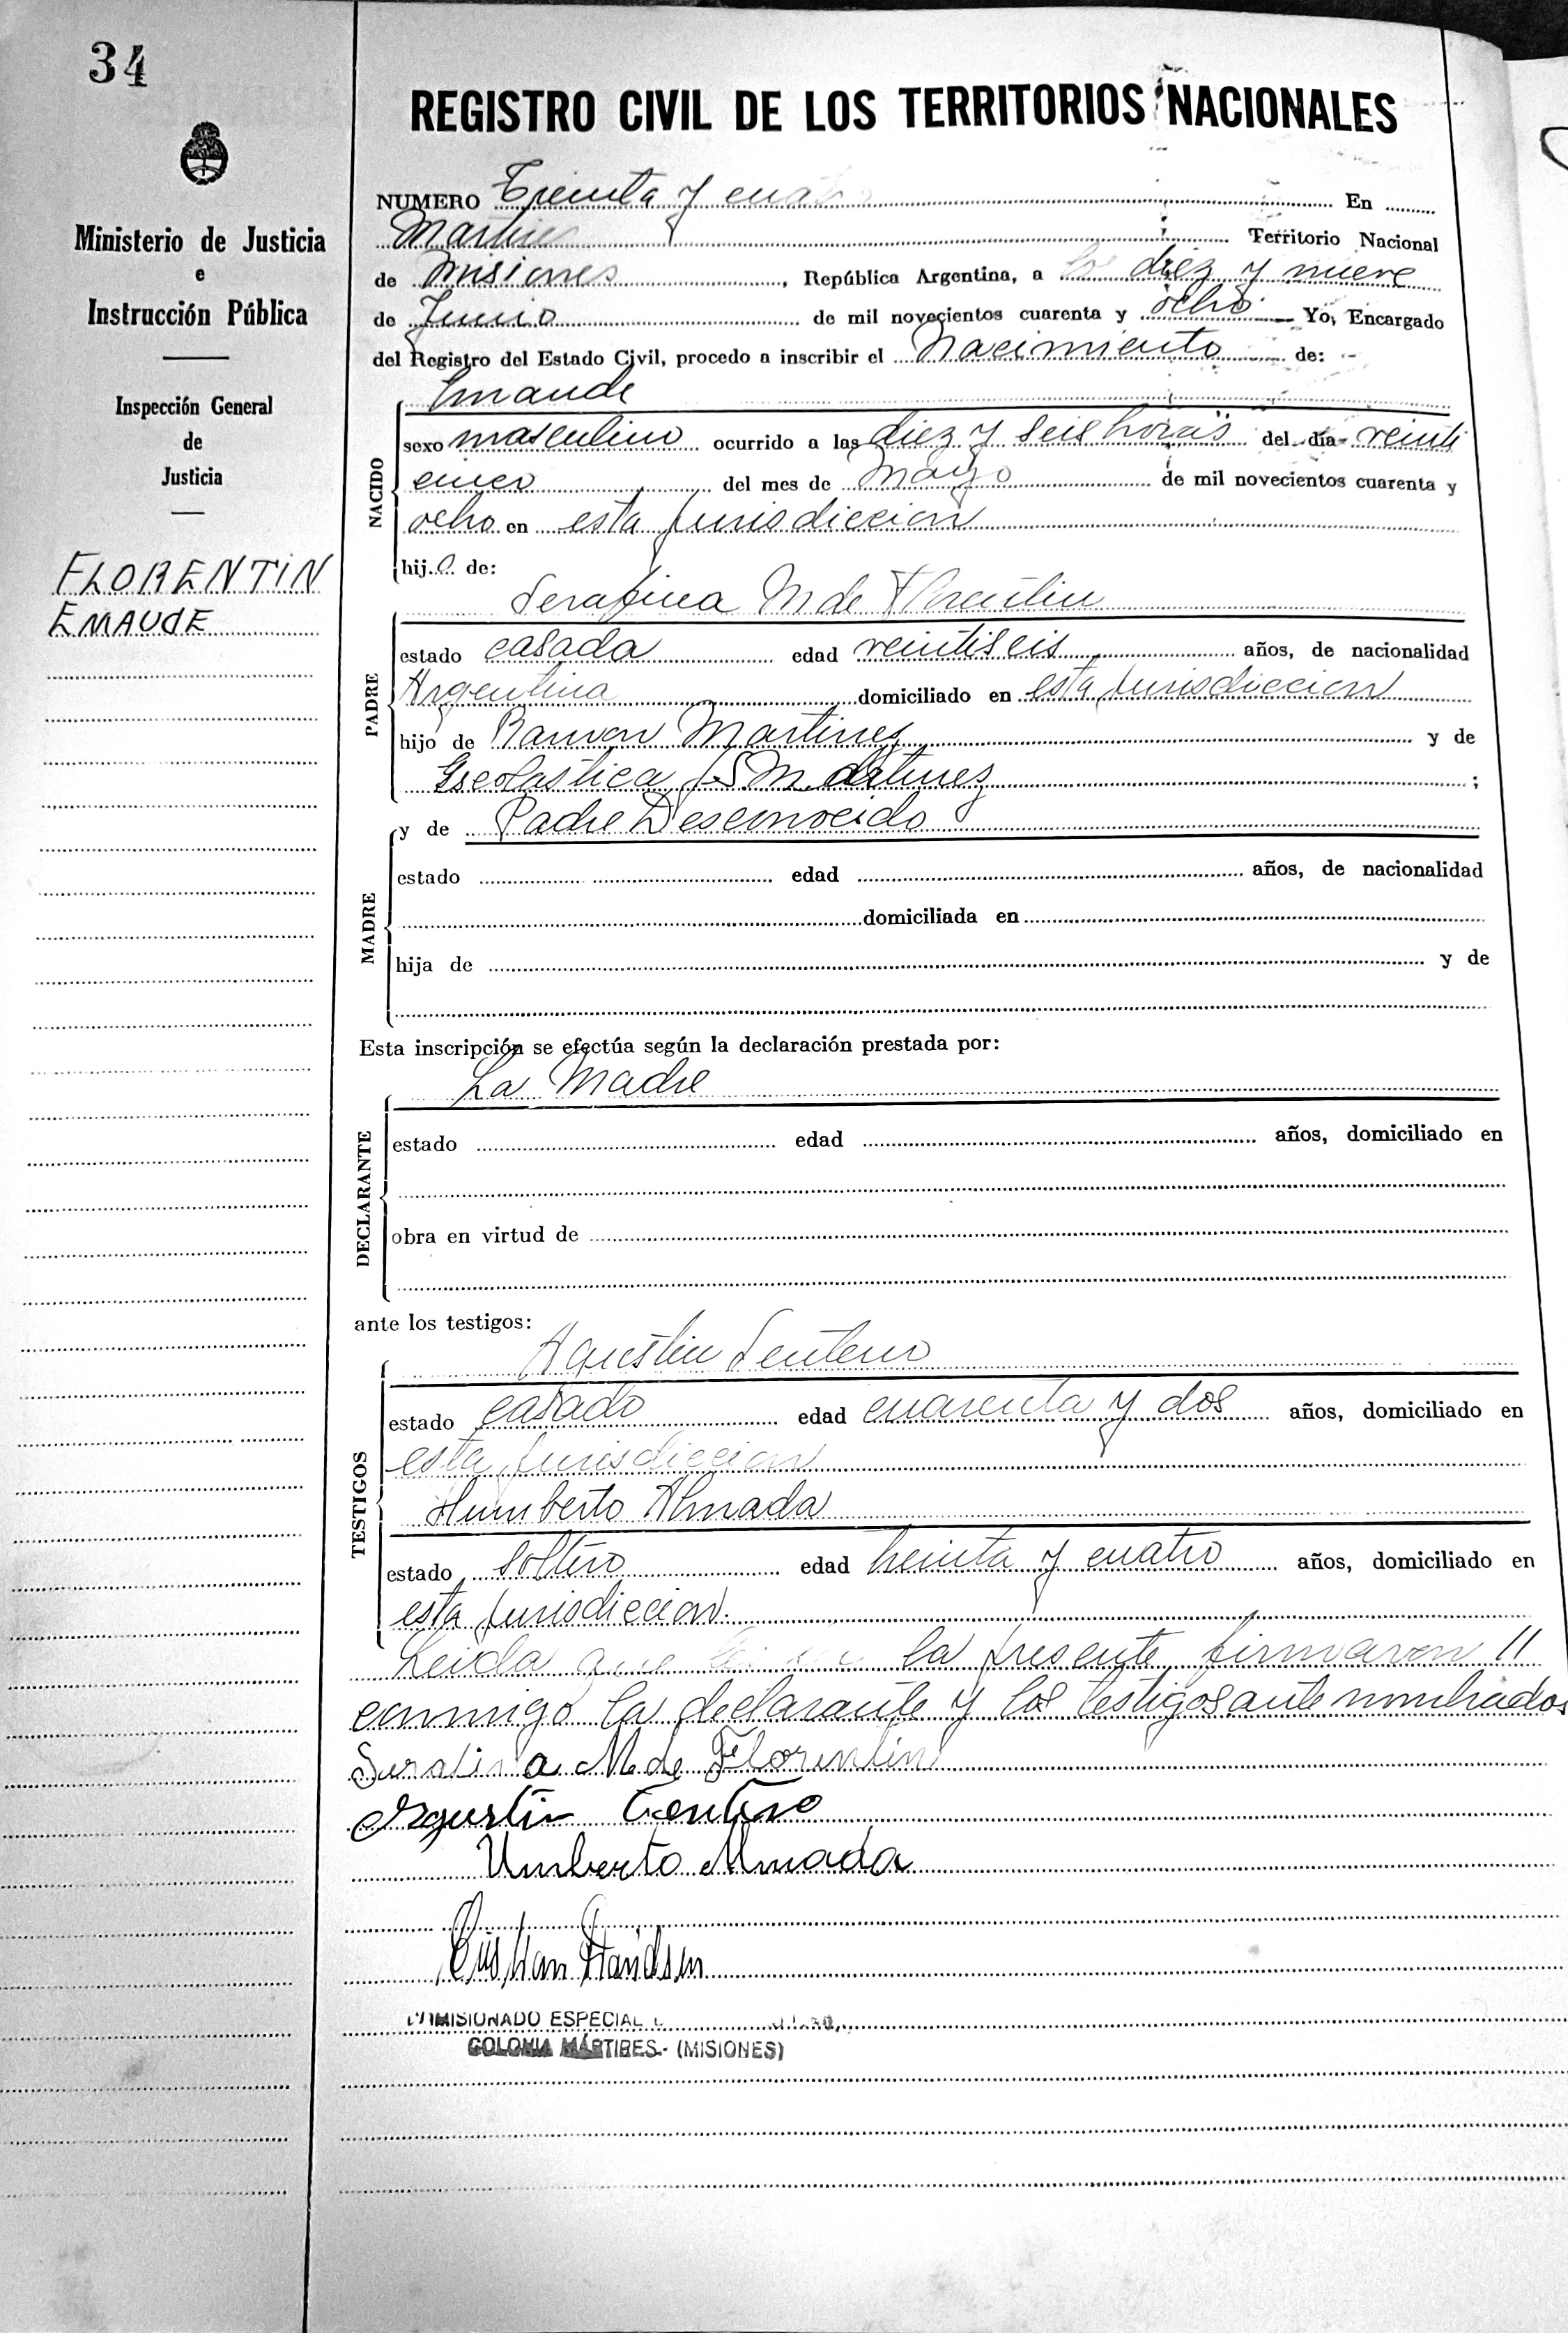 34
REGISTRO CIVIL DE LOS TERRITORIOS NACIONALES
Ministerio de Justicia
e
Instrucción Pública
Inspección General
de
Justicia
FLORENTIN
EMAUDE
NUMERO Treinta y cuatro En
Martires Territorio Nacional
de Misiones, República Argentina, a los diez y nueve
de Junio de mil novecientos cuarenta y ocho Yo, Encargado
del Registro del Estado Civil, procedo a inscribir el Nacimiento de:
Emaude
NACIDO
sexo masculino ocurrido a las diez y seis horas del día veinti
cinco del mes de Mayo de mil novecientos cuarenta y
ocho en esta Jurisdiccion
hijo de:
Serafina M de Florentin
PADRE
estado casada edad veintiseis años, de nacionalidad
Argentina domiciliado en esta Jurisdiccion
hijo de Ramon Martinez y de
Escolastica ;
y de Padre Desconocido
MADRE
estado edad años, de nacionalidad
domiciliada en
hija de y de
Esta inscripción se efectúa según la declaración prestada por:
La Madre
DECLARANTE
estado edad años, domiciliado en
obra en virtud de
ante los testigos:
Agustin Senteno
TESTIGOS
estado casado edad cuarenta y dos años, domiciliado en
esta Jurisdiccion
Humberto Almada
estado soltero edad treinta y cuatro años, domiciliado en
esta Jurisdiccion.
Leida que la presente firmaron //
conmigo la declarante y los testigos ante nombrados
Serafina M de Florentin
Agustin Centeno
Umberto Almada
COMISIONADO ESPECIAL
COLONIA MÁRTIRES - (MISIONES)